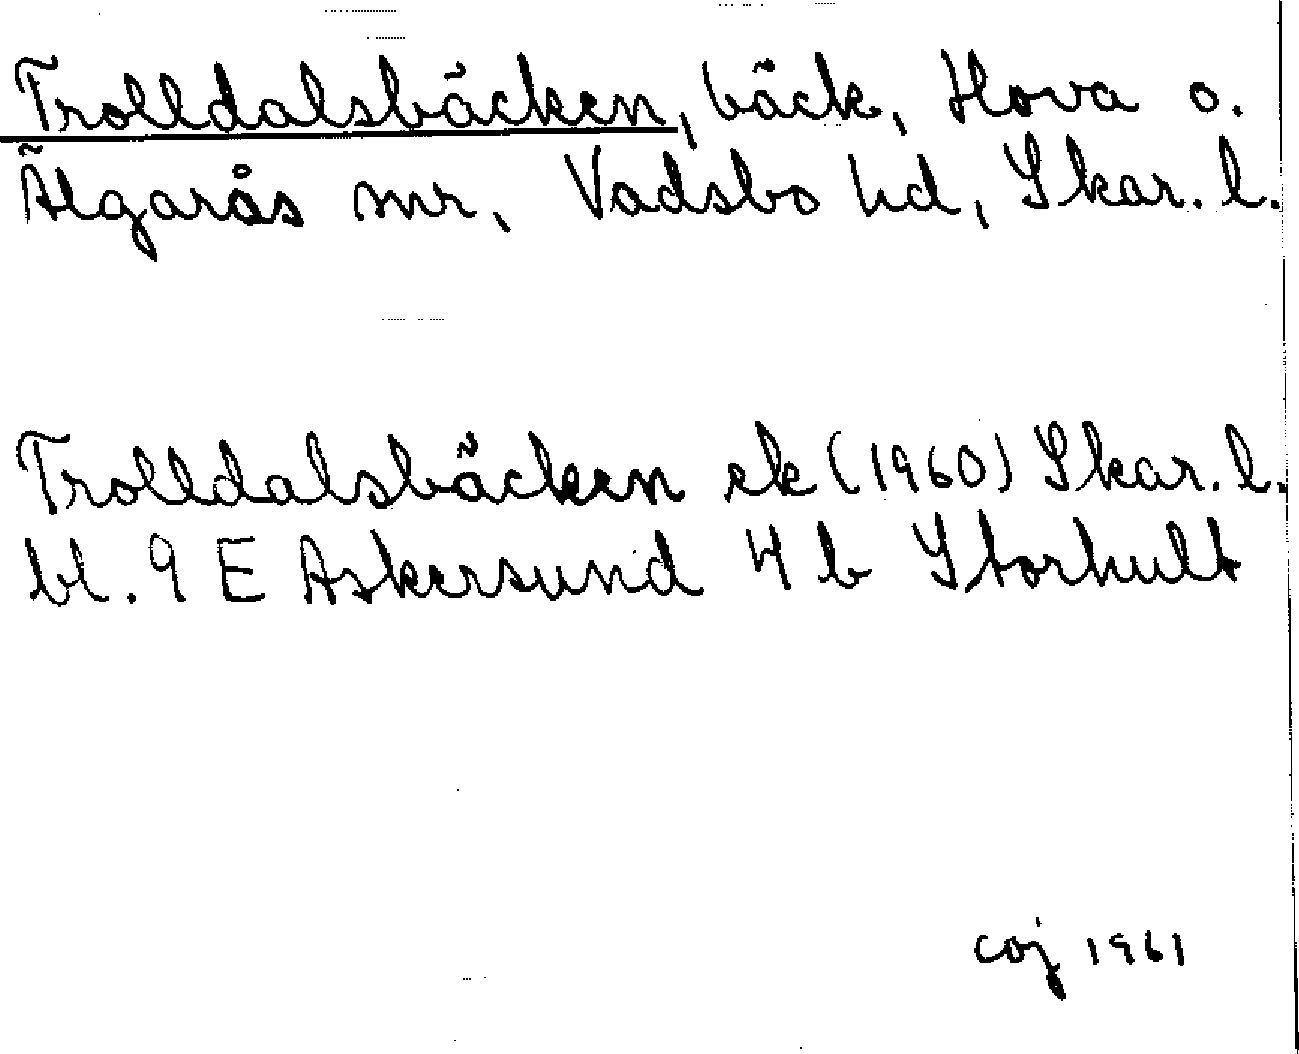 Trolldalsbäcken, bäck, Hova o.
Älgarås snr, Vadsbo hd, Skar. l.
Trolldalsbäcken ek (1960) Skar. l.
bl. 9 E Askersund 4 b Storhult
coj 1961